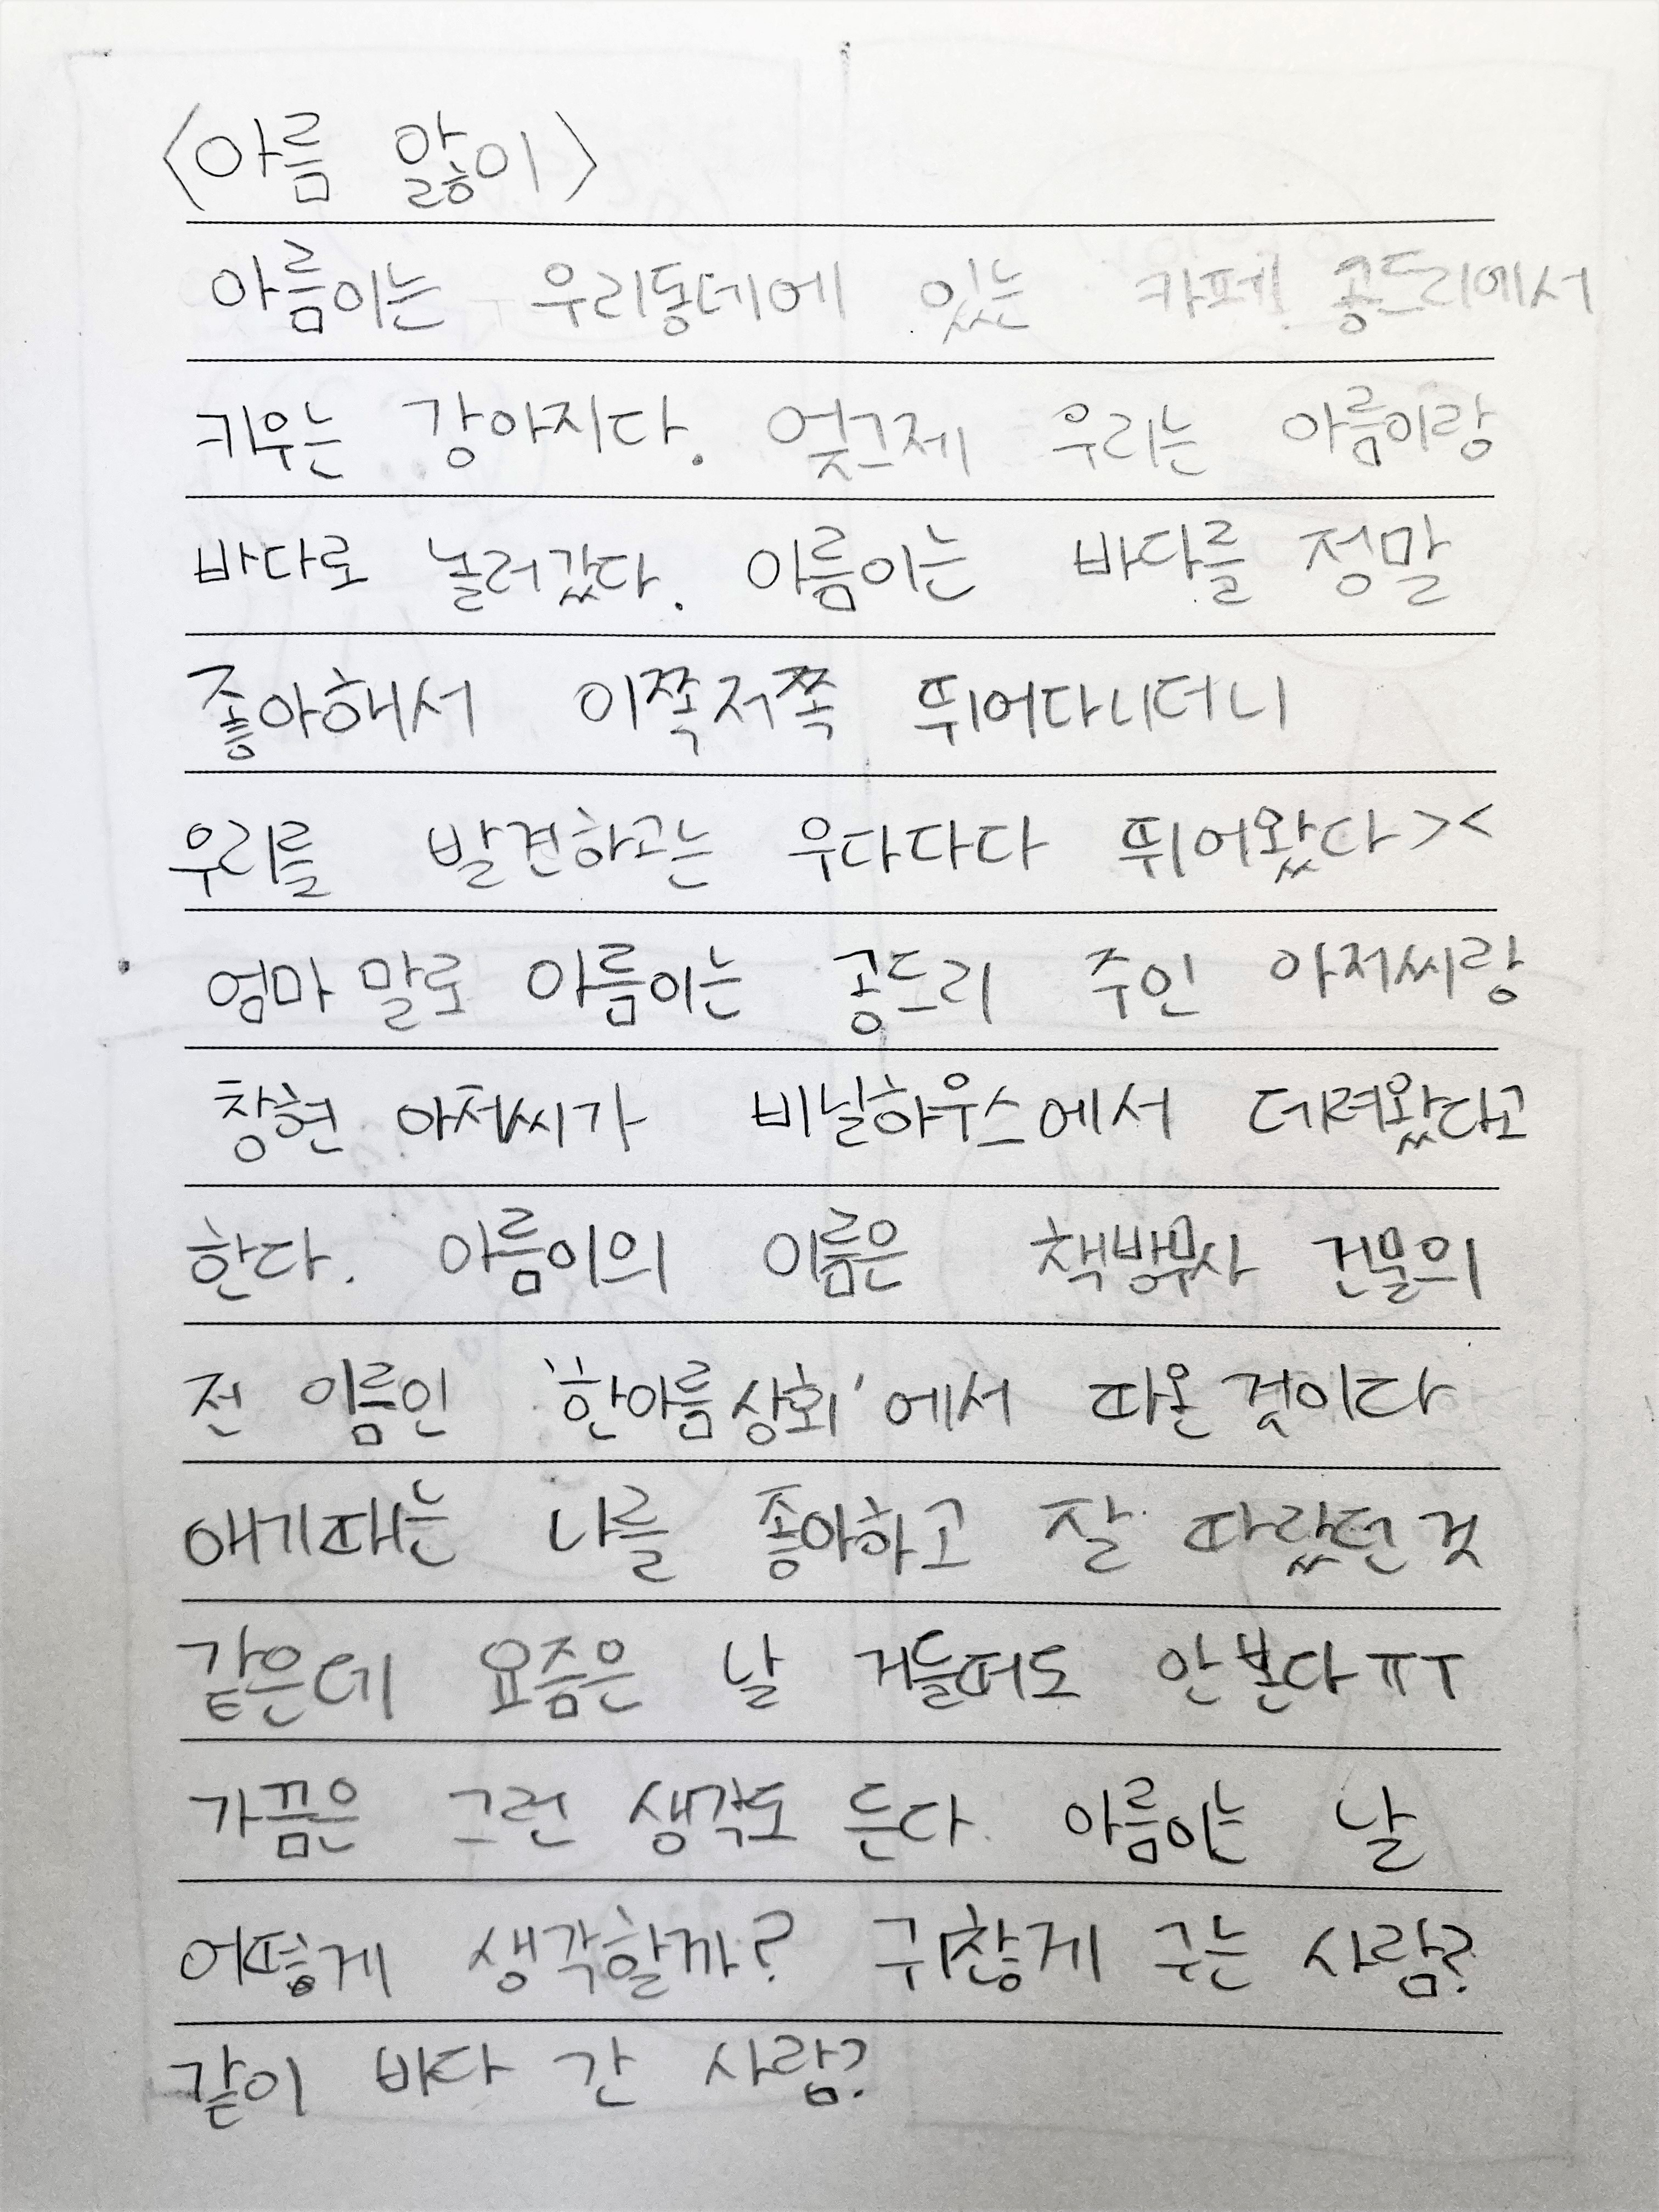 <아름 앓이>
아름이는 우리동데에 있는 카페 공드리에서
키우는 강아지다. 엊그제 우리는 아름이랑
바다로 놀러갔다. 아름이는 바다를 정말
좋아해서 이쪽저쪽 뛰어다니더니
우리를 발견하고는 우다다다 뛰어왔다><
엄마 말로 아름이는 공드리 주인 아저씨랑
창현 아저씨가 비닐하우스에서 데려왔다고
한다. 아름이의 이름은 책방무사 건물의
전 이름인 '한아름상회'에서 따온 것이다
애기때는 나를 좋아하고 잘 따랐던 것
같은데 요즘은 날 거들떠도 안 본다ㅠㅜ
가끔은 그런 생각도 든다. 아름이는 날
어떻게 생각할까? 귀찮게 구는 사람?
같이 바다 간 사람?